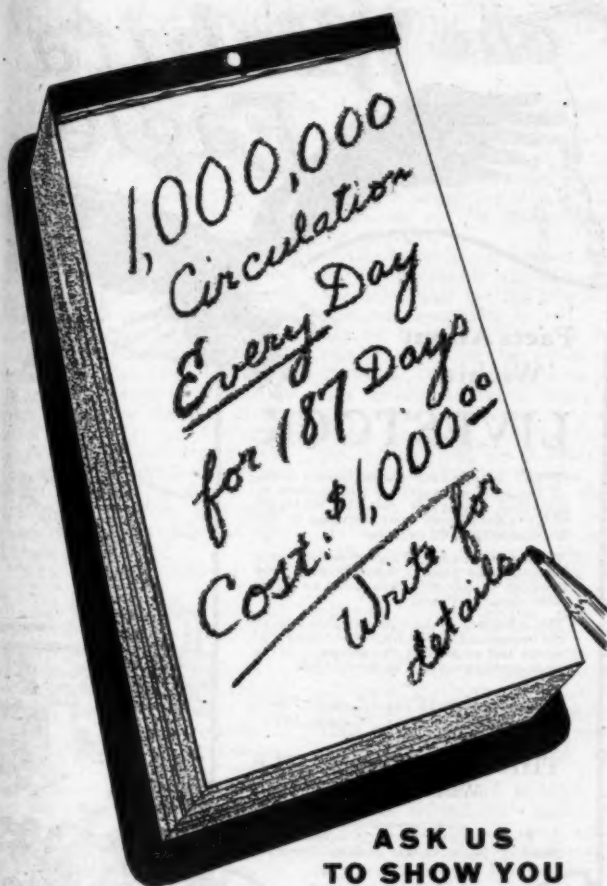 1,000,000
Circulation
Every Day
for 187 Days
Cost: $1,000.00
Write for
details
ASK US
TO SHOW YOU